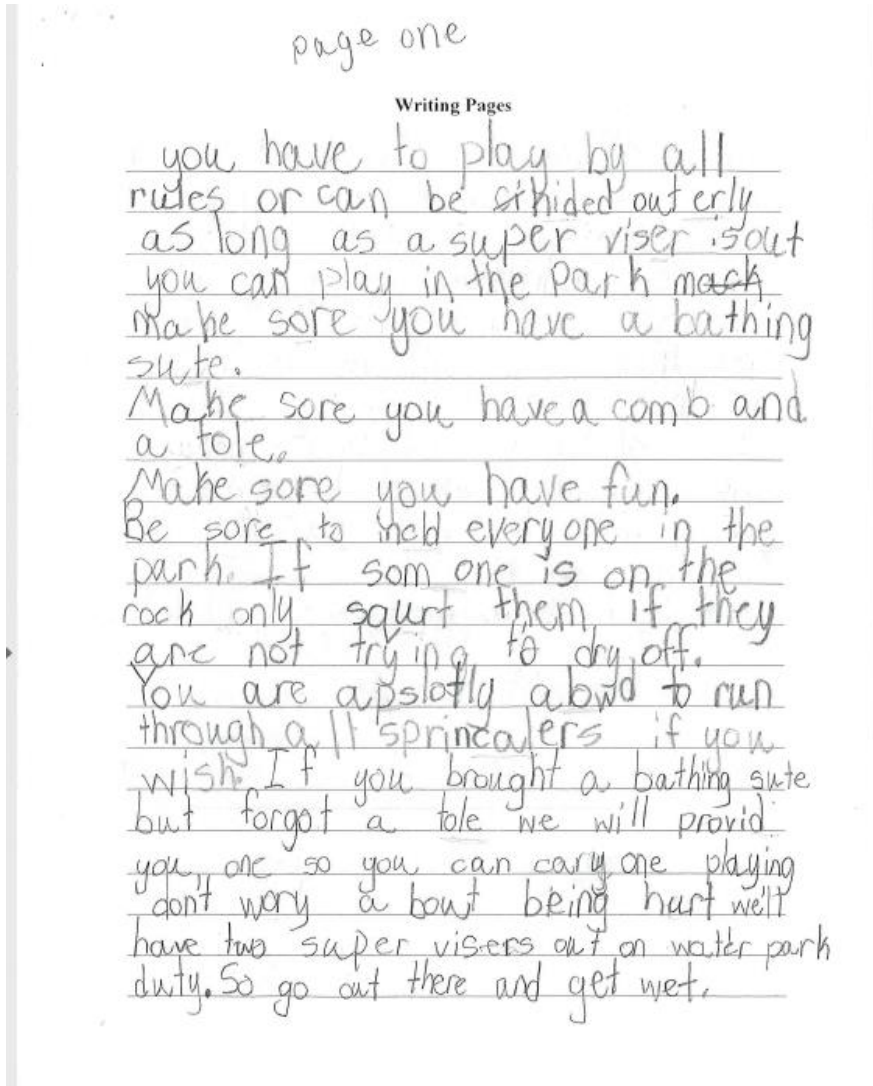 page one
Writing Pages
you have to play by all
rules or can be out erly
as long as a super viser is out
you can play in the Park mack
make sore you have a bathing
sute.
Make sore you have a comb and
a tole.
Make sore you have fun.
Be sore to incld every one in the
park. If som one is on the
rock only squrt them if they
are not trying to dry off.
You are apslotly alowd to run
through all sprincalers if you
wish. If you brought a bathing sute
but forgot a tole we will provid
you one so you can cary one playing
don't wory a bout being hurt we'll
have two super visers out on water park
duty. So go out there and get wet.